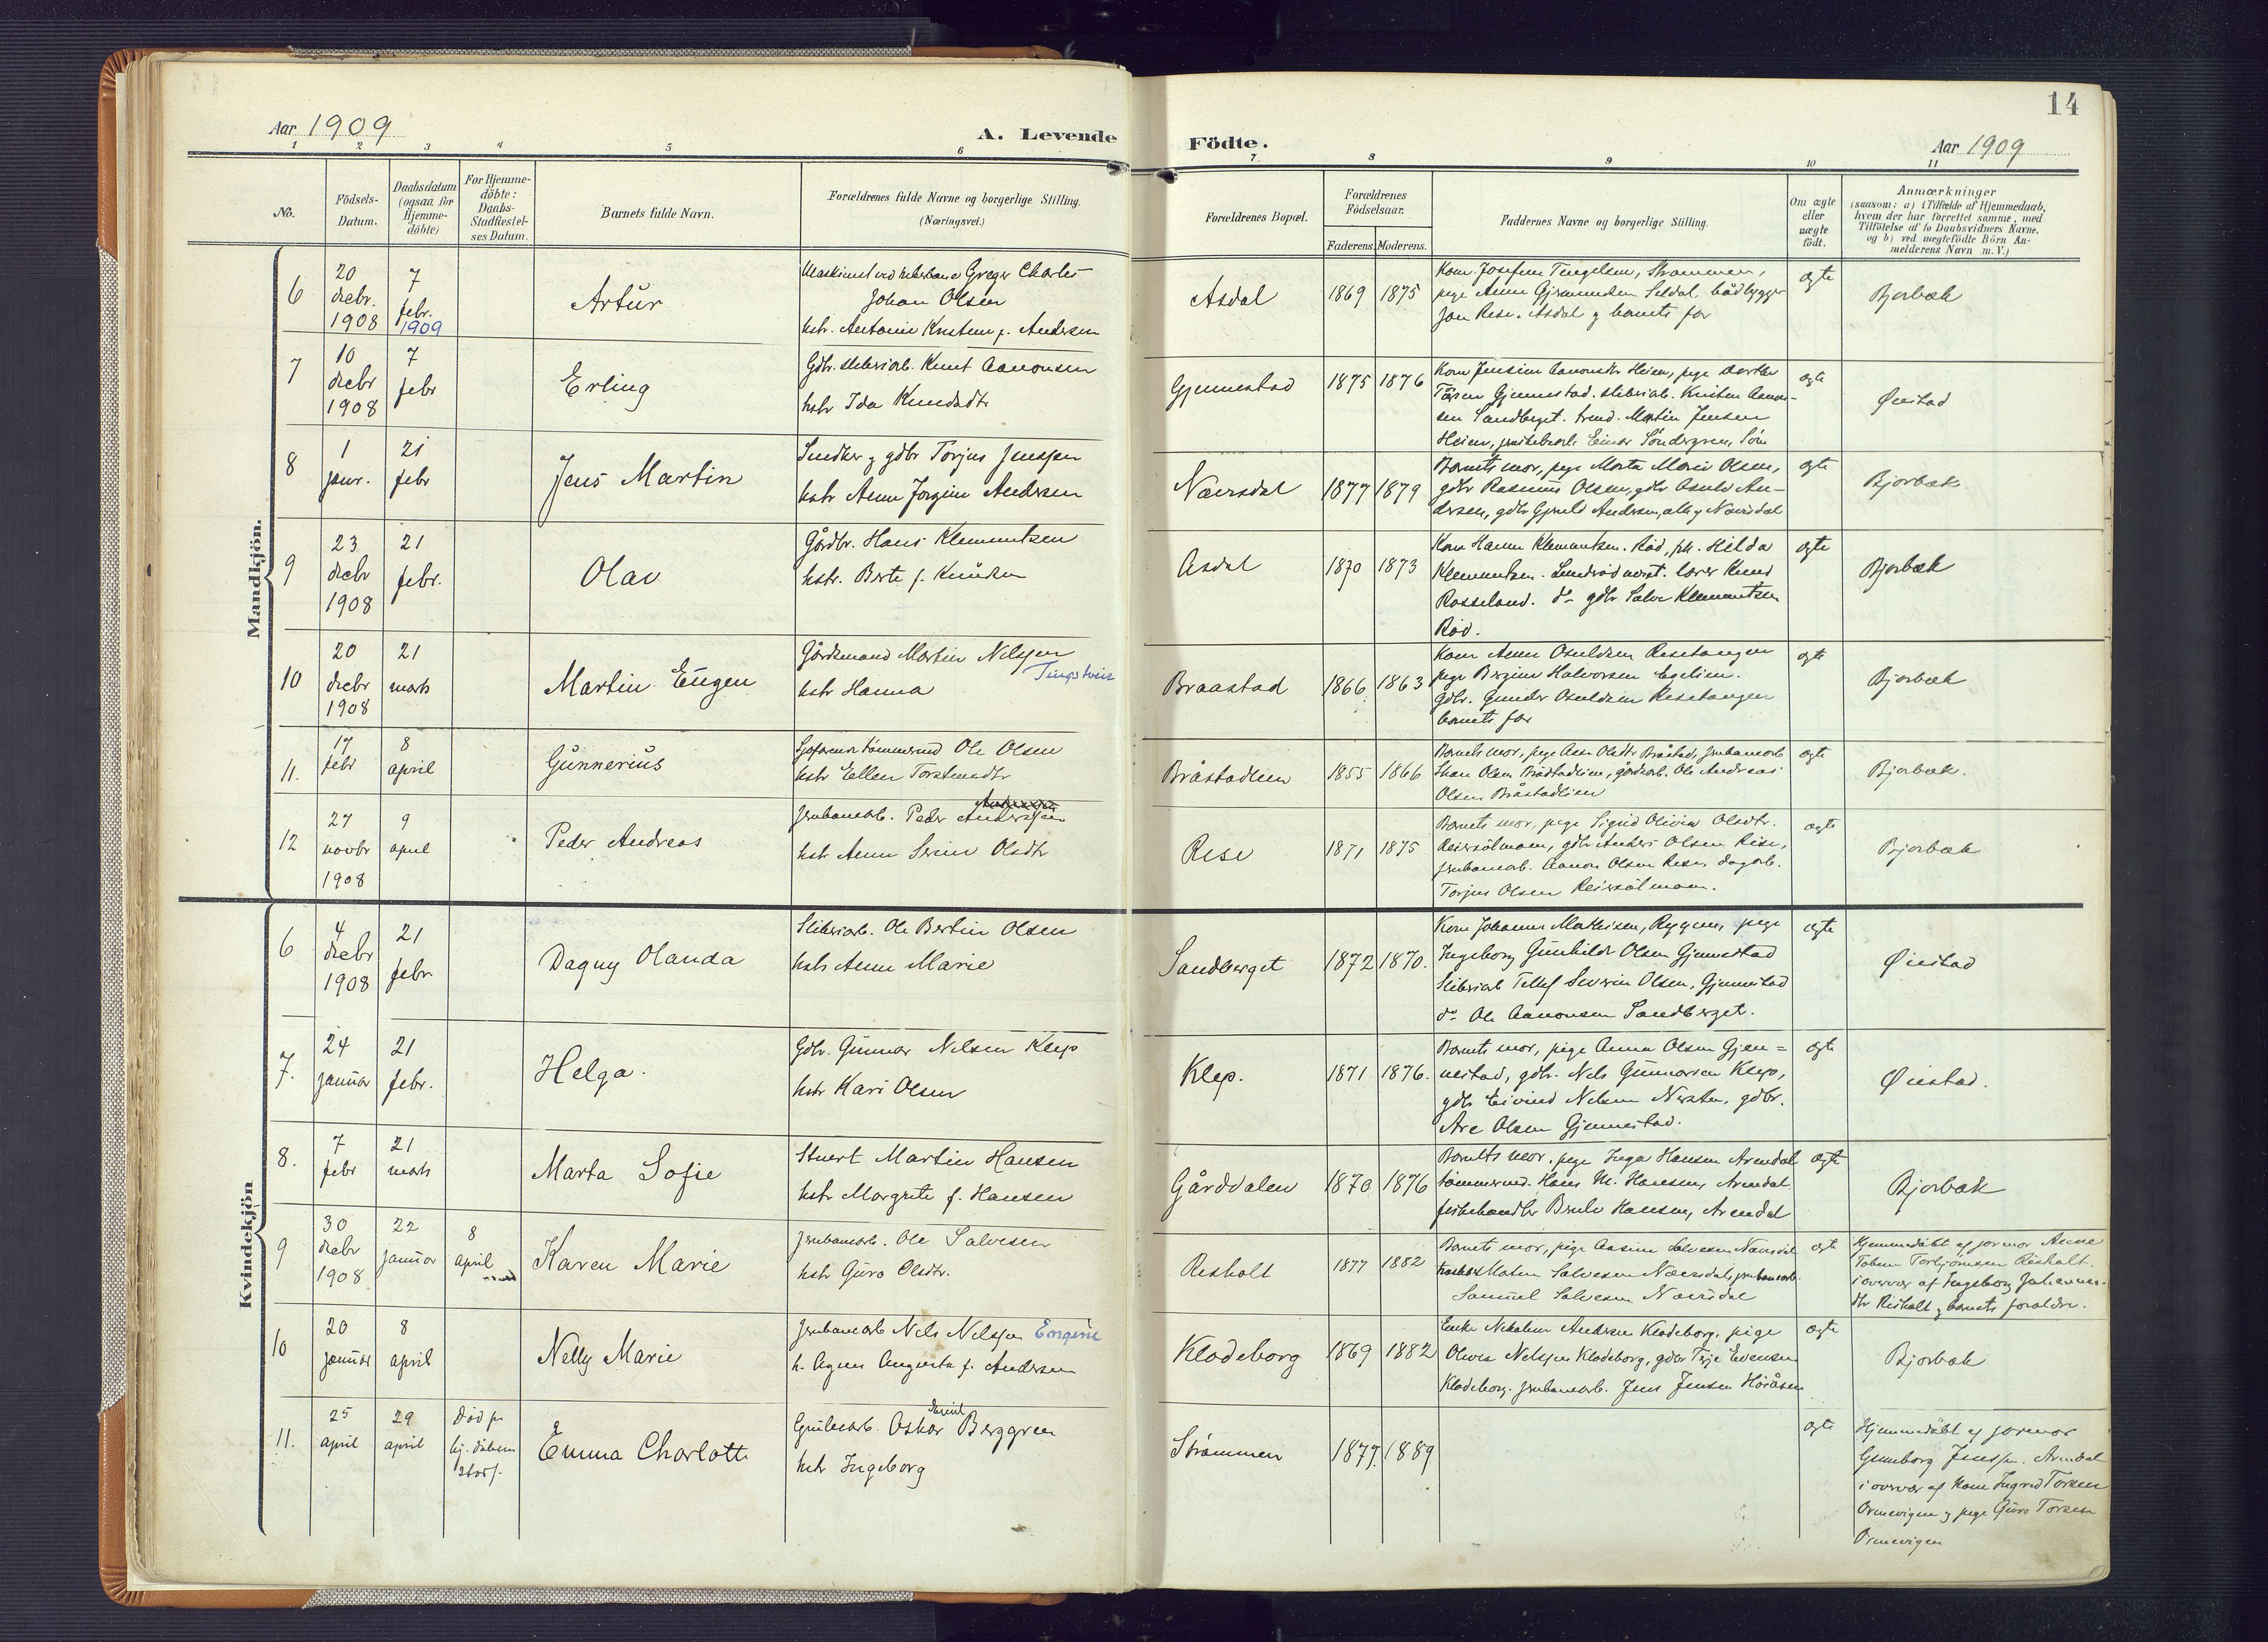 14
Aar 1909
A. Levende
Födte.
Aar 1909
1 2 3 4 5 6 7 8 9 10 11
No.
Födsels-
Datum.
Daabsdatum
(ogsaa for
Hjemme-
döbte)
For Hjemme-
döbte:
Daabs-
Stadfæstel-
ses Datum.
Barnets fulde Navn.
Forældrenes fulde Navne og borgerlige Stilling.
(Næringsvei.)
Forældrenes Bopæl.
Forældrenes
Födselsaar.
Faderens. Moderens.
Faddernes Navne og borgerlige Stilling.
Om ægte
eller
uægte
födt.
Anmærkninger
(saasom: a) i Tilfælde af Hjemmedaab,
hvem der har forrettet samme, med
Tilföielse af to Daabsvidners Navne.
og b) ved uægtefödte Börn An-
melderens Navn m. V.)
Mandkjön.
6
20
decbr.
1908
7
febr.
1909
Artur
Greger Charles
Johan Olsen
hstr. Antonie Kristine f. Andersen
Asdal
1869 1875
ægte
Bjorbæk
7
10
decbr
1908
7
febr
Erling
Gdbr. sliberiarb. Knut Aanonsen
hstr Ida Knudsdtr
Gjennestad
1875 1876
ægte
Øiestad
8
1
janr.
21
febr
Jens Martin
Snedker og gdbr Torjus Jenssen
hstr Anne Jorgine Andersen
Næversdal
1877 1879
Barnets mor, pige Marta Marie Olsen,
gdbr Rasmus Olsen, gdbr Osuld An-
dersen, gdbr Gjeruld Andersen, alle af Næversdal
ægte
Bjorbæk
9
23
decbr
1908
21
febr.
Olav
Gårdbr. Hans Klemmetsen
hstr. Berte f. Knudsen
Asdal
1870 1873
Kone Hanna Klemmetsen. Rød, frk. Hilda
Klemmetsen. lærer Knud
Rosseland. do gdbr Salve Klemmetsen
Rød.
ægte
Bjorbæk
10
20
decbr
1908
21
marts
Martin Eugen
Gårdmand Martin Nilssen
Tingstveit
hstr Hanna
Braastad
1866 1863
Kone Anne Osuldsen Resetangen
pige Bergine Halvorsen Egelien.
Gdbr. Gunder Osuldsen Resetangen
barnets far
ægte
Bjorbæk
11.
17
febr
8
april
Gunnerius
tømmermd Ole Olsen
hstr Ellen Torstensdtr
Bråstadlien
1855 1866
Barnets mor, pige Olsdtr Bråstad, jernbanearb
Olsen Bråstadlien, gårdarb. Ole Andreas
Olsen Bråstadlien
ægte
Bjorbæk.
12
27
novbr
1908
9
april
Peder Andreas
Jernbanearb. Peder Anderssen
hstr Anne Serine Olsdtr
Rese
1871 1875
Barnets mor, pige Sigrid Olivia Olsdtr.
Reiersølmoen, gdbr Anders Olsen Rise,
jernbanearb. Aanon Olsen Rese, dagarb.
Torjus Olsen Reiersølmoen.
ægte
Bjorbæk
Kvindekjön
6
4
decbr
1908
21
febr.
Dagny Olanda
Sliberiarb. Ole Bertin Olsen
hstr Anne Marie
Sandberget
1872 1870.
Kone Johanne Mathisen, Ryggen, pige
Ingeborg Gunhilde Olsen Gjennestad
Sliberiarb Tellef Severin Olsen, Gjennestad
do Ole Aanonsen Sandberget.
ægte
Øiestad
7.
24
januar
21
febr.
Helga.
Gdbr. Gunnar Nilsen Klep
hstr Kari Olsen
Klep.
1871 1876.
Barnets mor, pige Anna Olsen Gjen=
nestad, gdbr. Nels Gunnarsen Klep,
gdbr Eivind Nilsen Nersten, gdbr.
Are Olsen Gjennestad.
ægte
Øiestad.
8.
7
febr
21
marts
Marta Sofie
Stuert Martin Hansen
hstr Margrete f. Hansen
Gårddalen
1870 1876
Barnets mor, pige Inga Hansen Arendal
tømmermd. Hans M. Hansen, Arendal
fiskehandler Hansen, Arendal
ægte
Bjorbæk
9
30
decbr
1908
22
januar
8
april
Karen Marie
Jernbanearb. Ole Salvesen
hstr Guro Olsdtr.
Resholt
1877 1882
Barnets mor, pige Salvesen Næversdal
Salvesen Næversdal, jernbanearb.
Samuel Salvesen Næversdal
ægte
Hjemmedøbt af jormor Anne
Torbjørnsen Resholt.
i overvær af Ingeborg Johannes-
dtr Resholt og barnets forældre.
10
20
januar
8
april
Nelly Marie
Jernbanearb Nels Nelssen Engene
h. Agnes Augusta f. Andersen
Klodeborg
1869 1882
Enke Andersen Klodeborg, pige
Olivia Nelssen Klodeborg, gdbr Terje Evensen
Klodeborg. jernbanearb. Jens Jensen Høiåsen
ægte
Bjorbæk
11.
25
april
29
april
Død før
hj. dåben
stadf.
Emma Charlotte
Grubearb. Oskar David Berggren
hstr Ingeborg
Strømmen
1877. 1889
ægte
Hjemmedøbt af jormor
Gunborg Arendal
i overvær af kone Ingrid Torsen
Ormevigen og pige Guro Torsen
Ormevigen